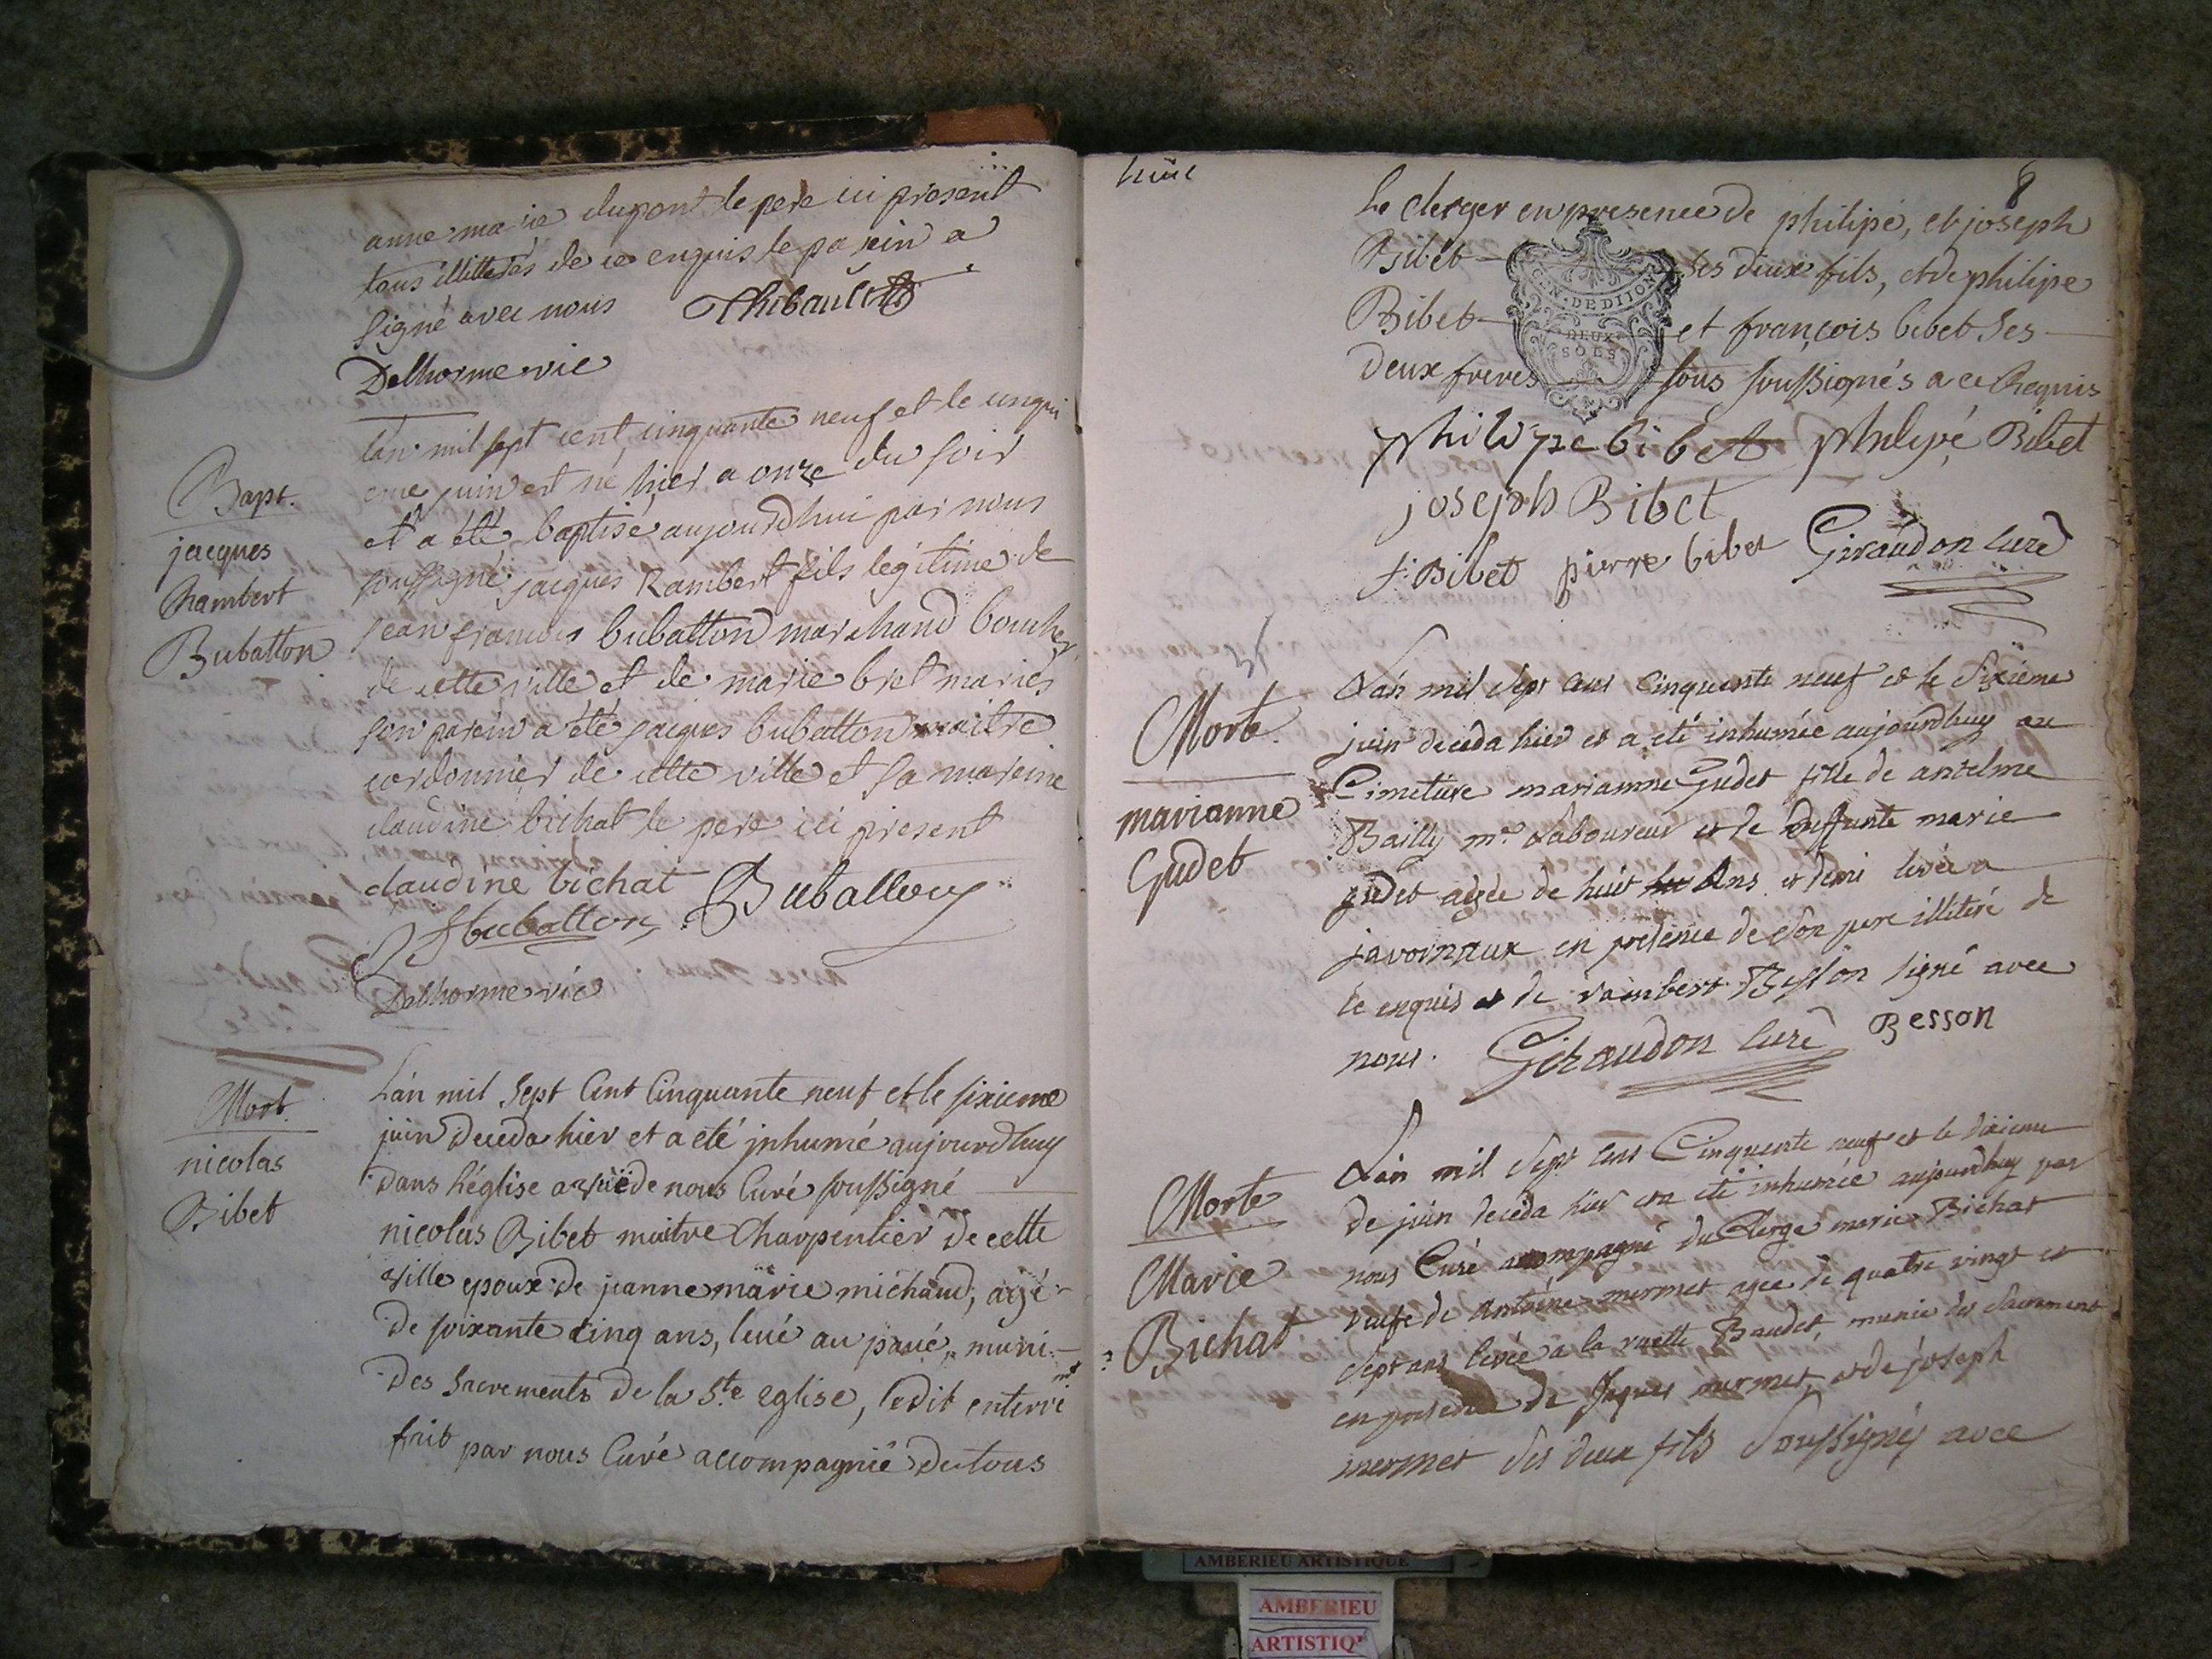 anne marie dupont le pere ici present
tous illitterés de ce enquis le parein a
signé avec nous Thibault
Delhorme vic
Bapt.
jacques
Rambert
Bubatton
l'an mil sept cent cinquante neuf et le cinqui
eme juin est né hier a onze du soir
et a été baptisé aujourdhui par nous
soussigné jacques Rambert fils légitime de
jean francois bubatton marchand boucher
de cette ville et de marie bret mariés
son parein a été jacques bubatton maitre
cordonnier de cette ville et sa mareine
claudine bichat le pere ici present
claudine bichat Bubatton
J bubatton
Delhorme vic
Mort.
nicolas
Bibet
L'an mil sept Cent Cinquante neuf et le sixieme
juin deceda hier et a eté jnhumé aujourdhuy
dans l'église de nous Curé soussigné
nicolas Bibet maitre Charpentier de cette
ville epoux de jeanne marie michaud, agé
de soixante cinq ans, levé au pavé, muni
des Sacrements de la Ste eglise, ledit enterre
mt
fait par nous Curé accompagnié de tous
huit
8
Le Clerger en presence de philipe, et joseph
Bibet ses deux fils, et de philipe
Bibet et françois bibet ses
deux freres tous soussignés a ce Requis
GEN. DE DIJON
DEUX
SOLS
philippe bibet philipé Bibet
joseph Bibet
f. Bibet pierre bibet Giraudon Curé
Morte.
marianne
Gudet
L'an mil sept cent cinquente neuf et le sixieme
juin deceda hier et a eté inhumée aujourdhuy au
Cimetiere marianne Gudet fille de antelme
Bailly mre Laboureur et de deffunte marie
gudet agée de huit ans et demi levée a
javornaux en presence de son pere illiteré de
ce enquis et de rambert Besson signé avec
nous. Giraudon Curé Besson
Morte
Marie
Bichat
L'an mil sept cens Cinquente neuf et le dixieme
de juin deceda hier et a eté inhumée aujourdhuy par
nous Curé accompagné du Clergé marie Bichat
veufe de Antoine mermet agée de quatre vingt et
sept ans levée a la ruette Baudet, munie des sacremens
en presence de Jaques mermet et de joseph
mermet ses deux fils soussignés avec
AMBERIEU ARTISTIQUE
AMBERIEU
ARTISTIQ